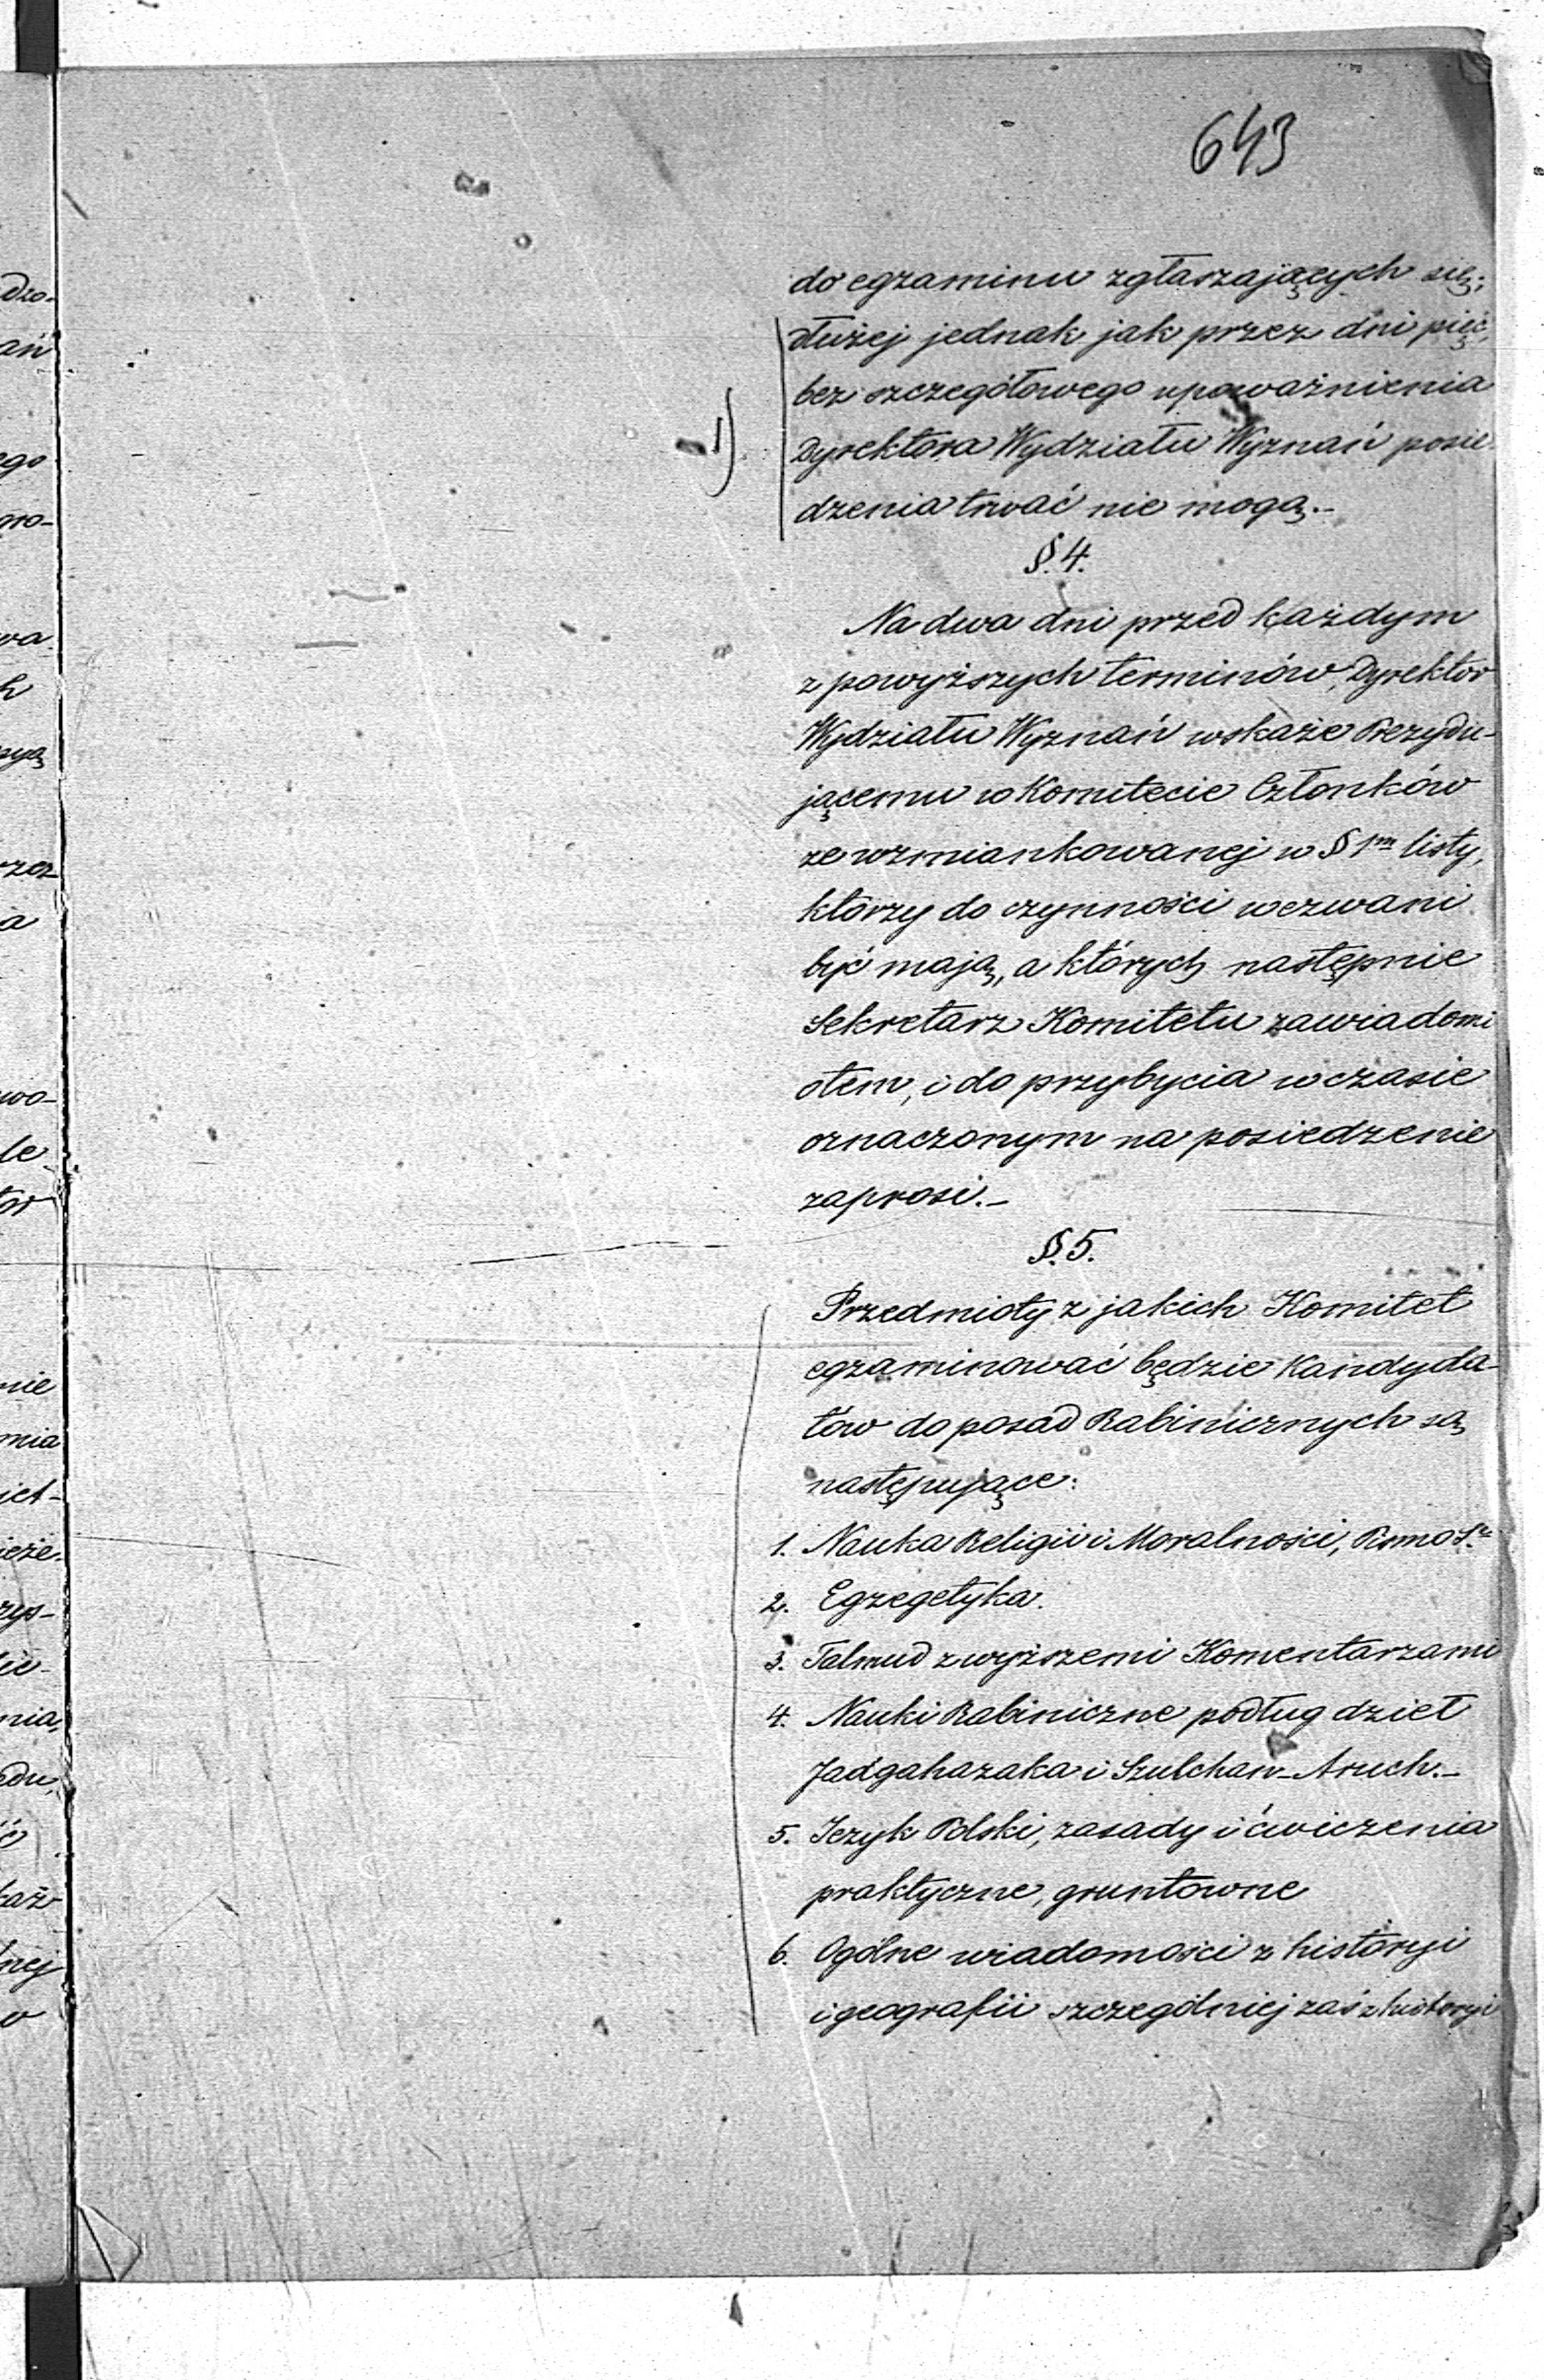 643
do egzaminu zgłaszających się;
dłużej jednak jak przez dni pięć,
bez szczegółowego upoważnienia
1)
Dyrektora Wydziału Wyznań posie
dzenia trwać nie mogą.-
§. 4.
Na dwa dni przed każdym
z powyższych terminów, Dyrektor
Wydziału Wyznań wskaże Prezydu-
jącemu w Komitecie Członków
ze wzmiankowanej w § 1m listy,
którzy do czynności wezwani
być mają, a których następnie
Sekretarz Komitetu zawiadomi
otem, i do przybycia w czasie
oznaczonym na posiedzenie
zaprosi.-
§. 5.
Przedmioty z jakich Komitet
egzaminować będzie Kandyda-
tów do posad Rabinicznych są
następujące:
1. Nauka Religii i Moralności, Pismo
2. Egzegetyka.
3. Talmud z wyższemi Komentarzami
4. Nauki Rabiniczne podług dzieł
Jadgahazaka i Szulchan-Aruch.-
5. Język Polski, zasady i ćwiczenia
praktyczne, gruntowne
6. Ogólne wiadomości z historyi
i geografii szczególniej zaś z historyi